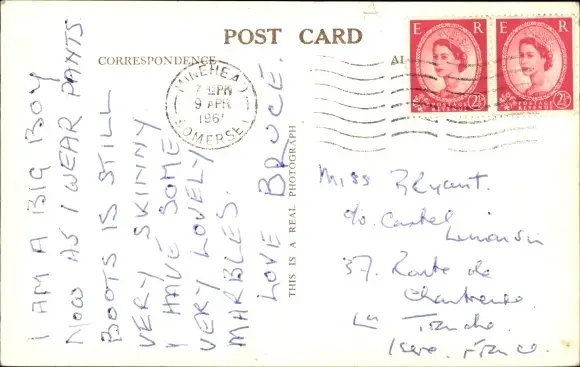 POST CARD
CORRESPONDENCE
I AM A BIG BOY
NOW AS I WEAR PANTS
BOOTS IS STILL
VERY SKINNY
I HAVE SOME
VERY LOVELY
MARBLES.
LOVE BRUCE.
THIS IS A REAL PHOTOGRAPH
MINEHEAD
PM
9 APR
1961
SOMERSET
E R
POSTAGE REVENUE
2½D
E R
POSTAGE REVENUE
2½D
Miss Bryant.
c/o Castel
37. Route de
Chartreuse.
La Tronche.
Isere. France.